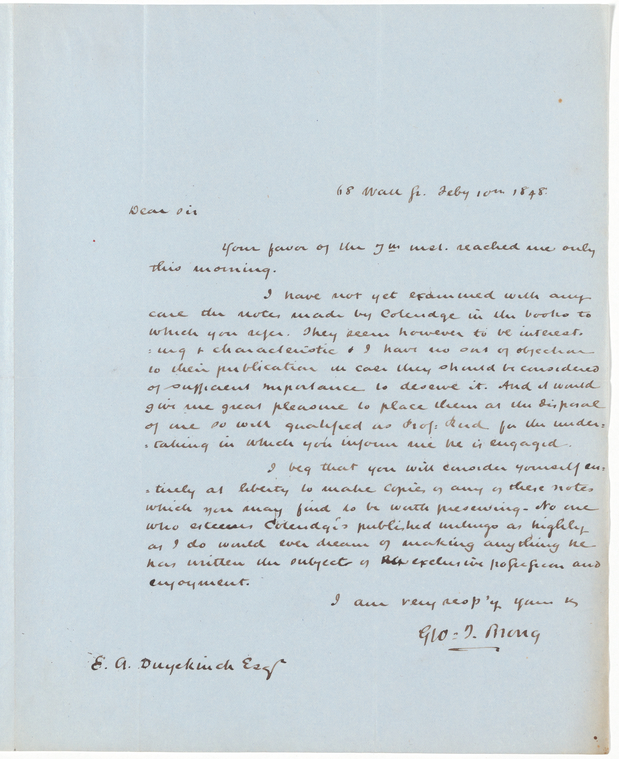 68 Wall St. Feby 10th 1848
Dear Sir
Your favor of the 7th inst. reached me only
this morning.
I have not yet examined with any
care the notes made by Coleridge in the books to
which you refer. They seem however to be interest-
:ing & characteristic & I have no sort of objection
to their publication in case they should be considered
of sufficient importance to deserve it. And it would
give me great pleasure to place them at the disposal
of one so well qualified as Prof: Reed for the under-
-taking in which you inform me he is engaged.
I beg that you will consider yourself en-
-tirely at liberty to make copies of any of these notes
which you may find to be worth preserving - No one
who esteems Coleridge's published writings as highly
as I do would ever dream of making anything he
has written the subject of exclusive possession and
enjoyment.
I am very resp'y yours
Geo: T. Strong
E. A. Duyckinck Esqr